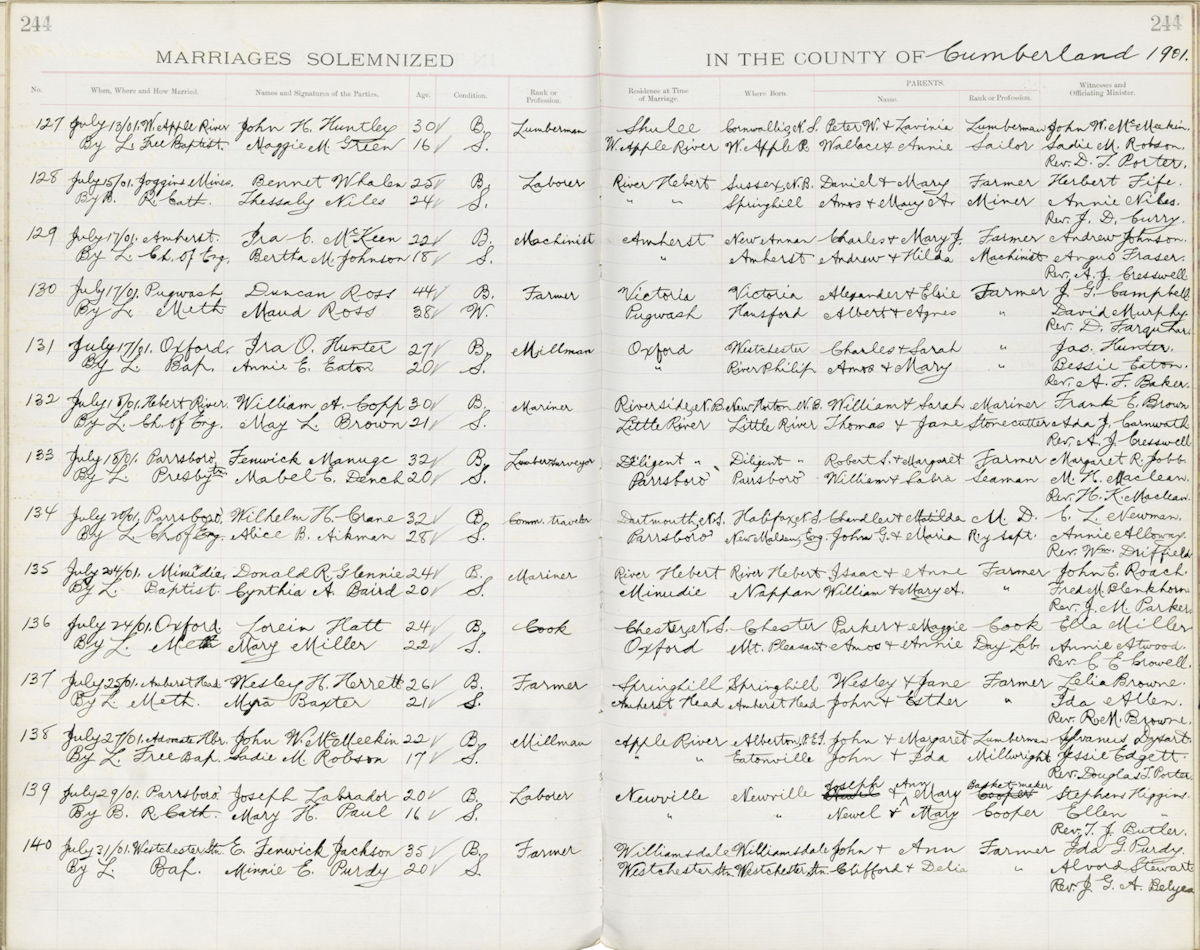 244
244
MARRIAGES SOLEMNIZED IN THE COUNTY OF Cumberland 1901.
No. When, Where and How Married. Names and Signatures of the Parties. Age. Condition. Rank or Profession. Residence at Time of Marriage. Where Born. PARENTS. Name. Rank or Profession. Witnesses and Officiating Minister.
127 July 13/01. W. Apple River John H. Huntley 30 B. Lumberman Shulee Cornwallis N.S. Peter W. & Lavinia Lumberman John W. McMeekin.
By L. Free Baptist. Maggie M. Green 16 S. W. Apple River W. Apple R. Wallace & Annie Sailor Sadie M. Robson.
Rev. D. T. Porter.
128 July 15/01. Joggins Mines. Bennet Whalen 25 B. Laborer River Hebert Sussex, N.B. Daniel & Mary Farmer Herbert Fife.
By B. R. Cath. Thessaly Niles 24 S. " " Springhill Amos & Mary A. Miner Annie Niles.
Rev. J. D. Curry.
129 July 17/01. Amherst. Ira C. McKeen 22 B. Machinist Amherst New Annan Charles & Mary J. Farmer Andrew Johnson.
By L. Ch. of Eng. Bertha M. Johnson 18 S. " Amherst Andrew & Hilda Machinist Angus Fraser.
Rev. A. J. Cresswell
130 July 17/01. Pugwash Duncan Ross 44 B. Farmer Victoria Victoria Alexander & Elsie Farmer J. G. Campbell
By L. Meth. Maud Ross 38 W. Pugwash Hansford Albert & Agnes " David Murphy.
Rev. D. Farquhar.
131 July 17/01. Oxford. Ira O. Hunter 27 B. Millman Oxford Westchester Charles & Sarah " Jas. Hunter.
By L. Bap. Annie E. Eaton 20 S. " River Philip Amos & Mary " Bessie Eaton.
Rev. A. F. Baker.
132 July 18/01. Hebert River. William A. Copp 30 B. Mariner Riverside, N.B. New Horton N.B. William & Sarah Mariner Frank E. Brown
By L. Ch. of Eng. May L. Brown 21 S. Little River Little River Thomas & Jane Stonecutter Ada J. Carnwath
Rev. A. J. Cresswell
133 July 18/01. Parrsboro Fenwick Manuge 32 B. Lumber surveyor Diligent " Diligent " Robert S. & Margaret Farmer Margaret R. Jobb.
By L. Presbytn Mabel E. Dench 20 S. Parrsboro Parrsboro William & Labra Seaman M. H. Maclean.
Rev. H. K. Maclean.
134 July 20/01. Parrsboro, Wilhelm H. Crane 32 B. Comm. traveler Dartmouth, N.S. Halifax, N.S. Chandler & Matilda M. D. C. L. Newman.
By L. Ch of Eng. Alice B. Aikman 28 S. Parrsboro New Malden, Eng. John G. & Maria Ry Supt. Annie Alloway.
Rev. Wm. Driffield
135 July 24/01. Minudie, Donald R. Glennie 24 B. Mariner River Hebert River Hebert Isaac & Anne Farmer John E. Roach.
By L. Baptist. Cynthia A. Baird 20 S. Minudie Nappan William & Mary A. " Fred M. Blenkhorn
Rev. J. M. Parker.
136 July 24/01. Oxford. Lorein Hatt 24 B. Cook Chester, N.S. Chester Parker & Maggie Cook Ella Miller
By L. Meth Mary Miller 22 S. Oxford Mt. Pleasant Amos & Annie Day Lab. Annie Atwood.
Rev. C. E. Crowell.
137 July 25/01. Amherst Head Wesley H. Horrett 26 B. Farmer Springhill Springhill Wesley & Jane Farmer Lelia Browne.
By L. Meth. Myra Baxter 21 S. Amherst Head Amherst Head John & Esther " Ida Allen.
Rev. R. M. Browne.
138 July 27/01. Advocate Hbr. John W. McMeekin 22 B. Millman Apple River Alberton, P.E.I. John & Margaret Lumberman Sylvanus Dysart.
By L. Free Bap. Sadie M. Robson 17 S. " " Eatonville John & Ida Millwright Jessie Edgett.
Rev. Douglas T. Porter
139 July 29/01. Parrsboro Joseph Labrador 20 B. Laborer Newville Newville Joseph & Ann Mary Basket-maker Stephens Higgins.
By B. R Cath. Mary H. Paul 16 S. " " Newel & Mary Cooper Ellen "
Rev. T. J. Butler.
140 July 31/01. Westchester Stn. E. Fenwick Jackson 35 B. Farmer Williamsdale Williamsdale John & Ann Farmer Ida G Purdy.
By L. Bap. Minnie E. Purdy 20 S. Westchester Stn. Westchester Stn. Clifford & Delia " Alvord Stewart
Rev. J. G. A. Belyea